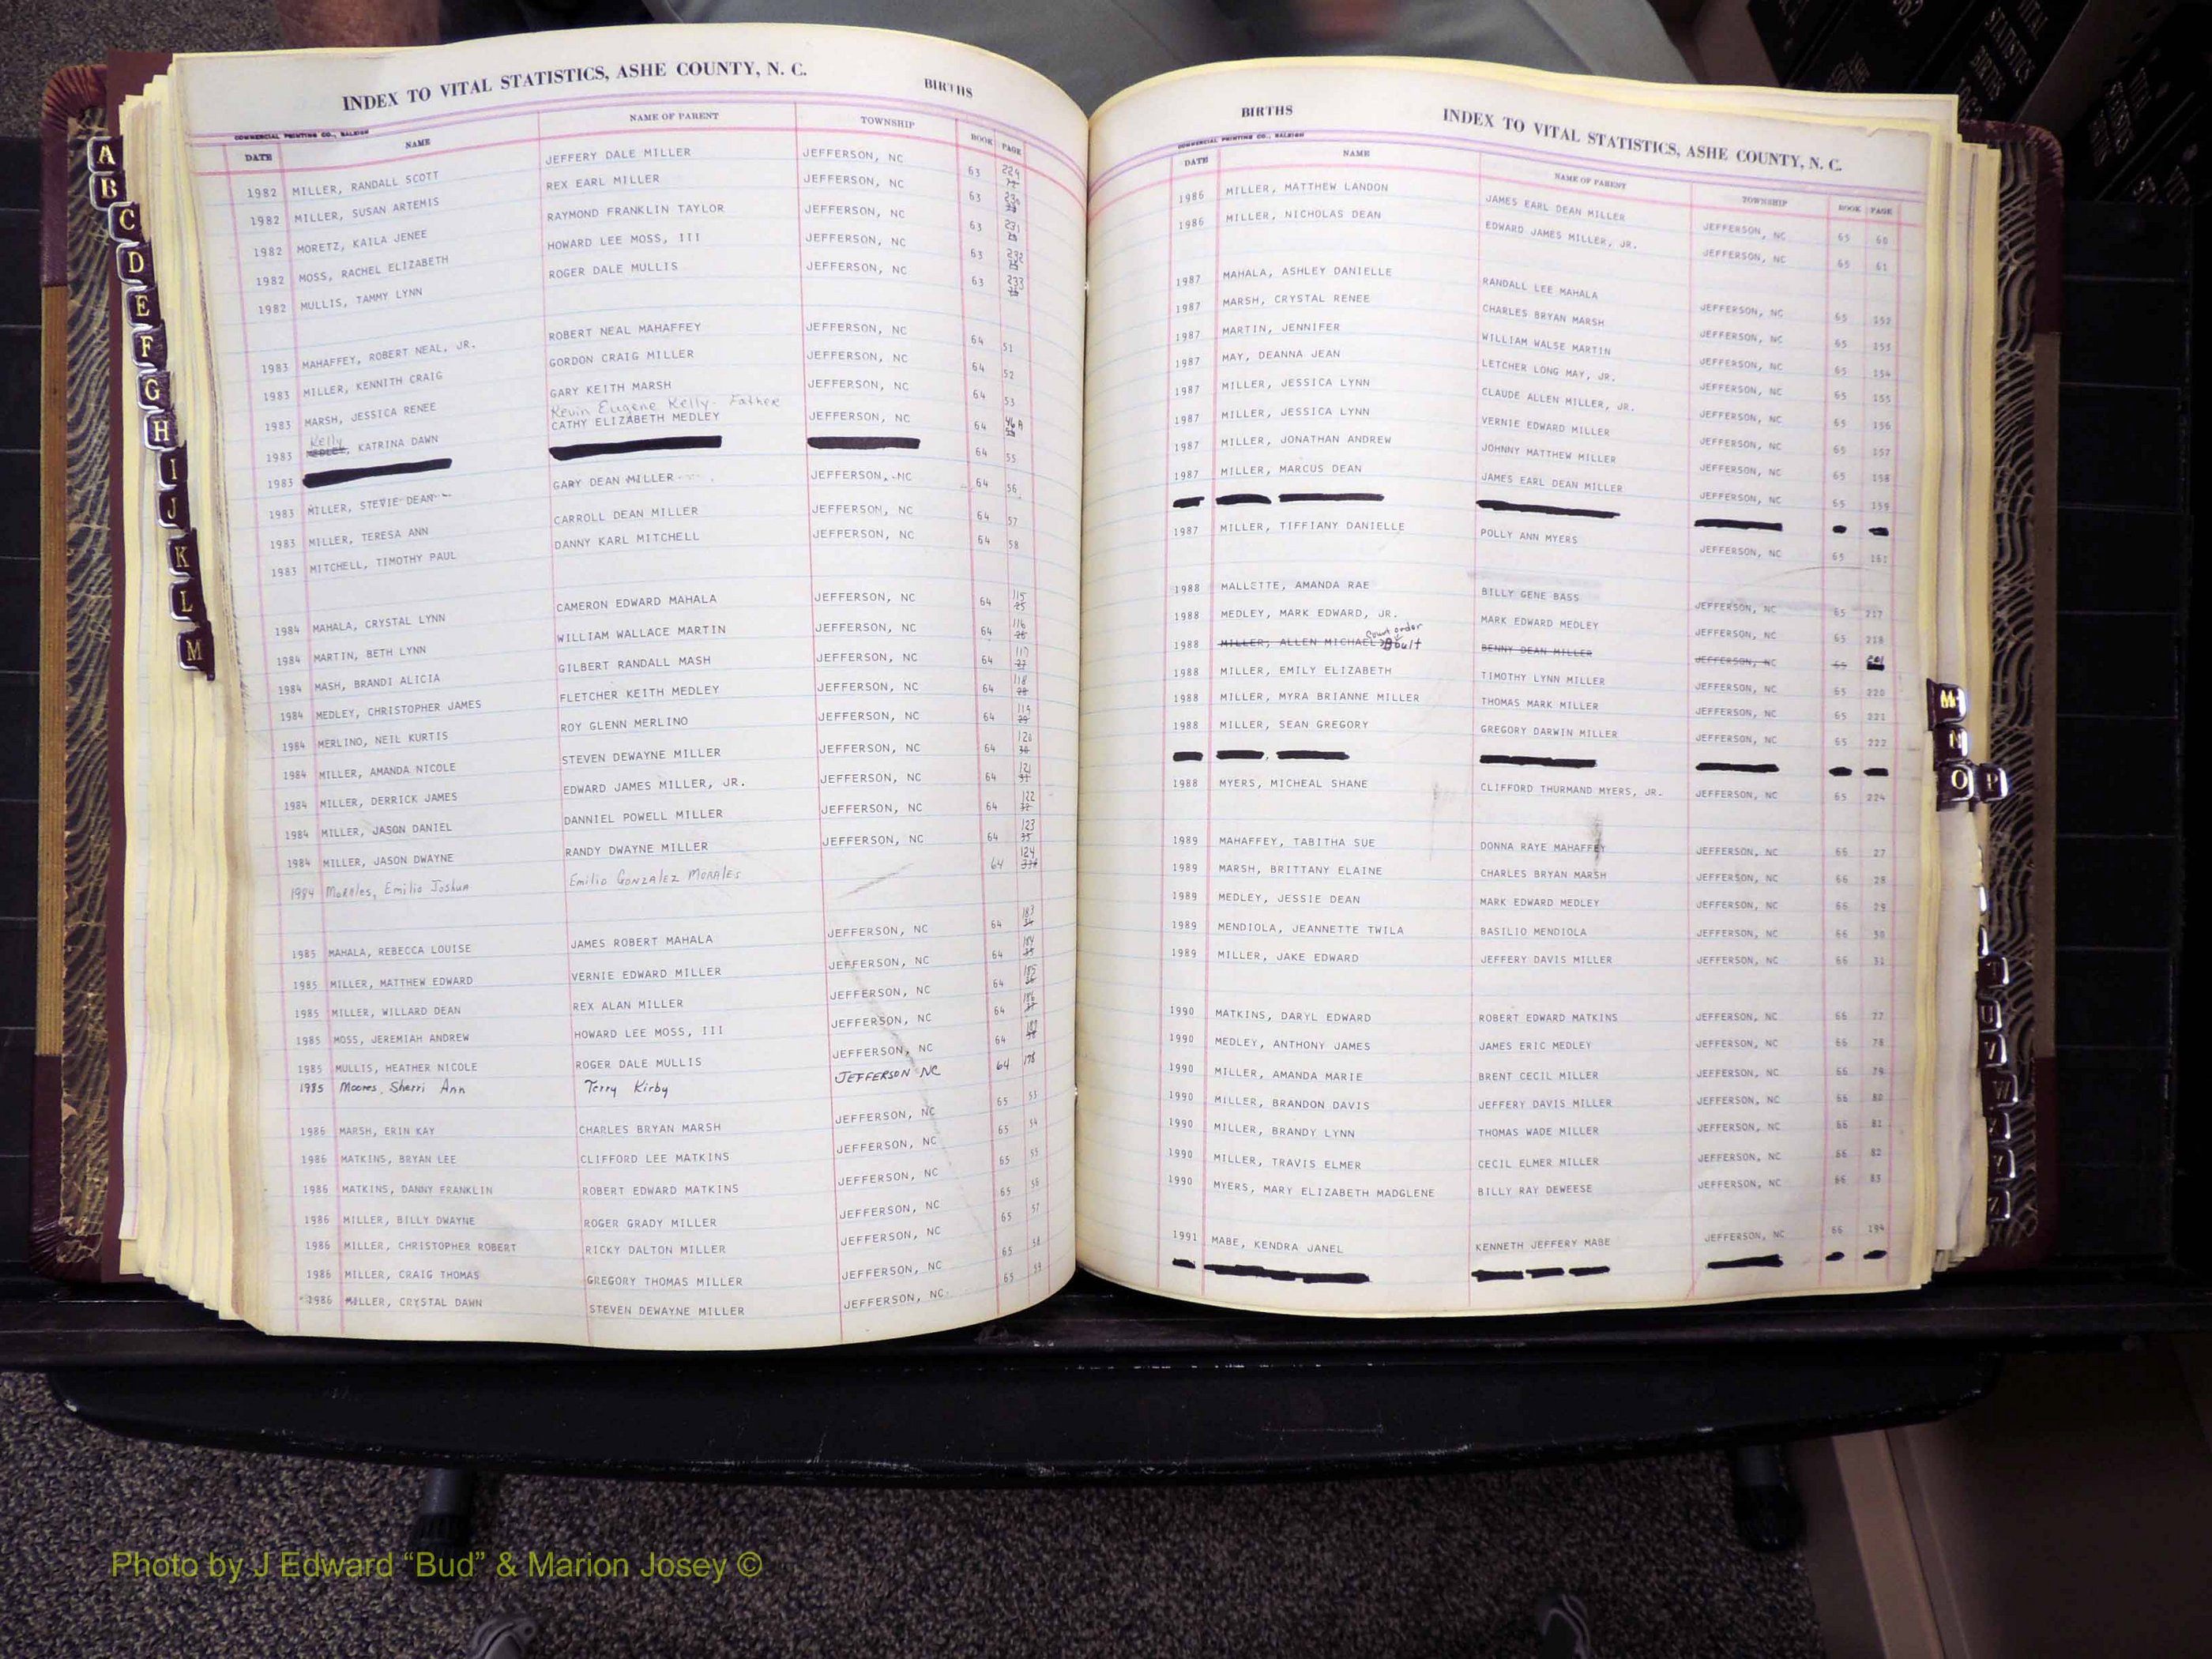 INDEX TO VITAL STATISTICS, ASHE COUNTY, N. C.
BIRTHS
COMMERCIAL PRINTING CO., RALEIGH
DATE NAME NAME OF PARENT TOWNSHIP BOOK PAGE
1982 MILLER, RANDALL SCOTT JEFFERY DALE MILLER JEFFERSON, NC 63 229
1982 MILLER, SUSAN ARTEMIS REX EARL MILLER JEFFERSON, NC 63 230
1982 MORETZ, KAILA JENEE RAYMOND FRANKLIN TAYLOR JEFFERSON, NC 63 231
1982 MOSS, RACHEL ELIZABETH HOWARD LEE MOSS, III JEFFERSON, NC 63 232
1982 MULLIS, TAMMY LYNN ROGER DALE MULLIS JEFFERSON, NC 63 233
1983 MAHAFFEY, ROBERT NEAL, JR. ROBERT NEAL MAHAFFEY JEFFERSON, NC 64 51
1983 MILLER, KENNITH CRAIG GORDON CRAIG MILLER JEFFERSON, NC 64 52
1983 MARSH, JESSICA RENEE GARY KEITH MARSH JEFFERSON, NC 64 53
Kelly Kevin Eugene Kelly - Father
1983 MEDLEY, KATRINA DAWN CATHY ELIZABETH MEDLEY JEFFERSON, NC 64 46A
1983 64 55
1983 MILLER, STEVIE DEAN GARY DEAN MILLER JEFFERSON, NC 64 56
1983 MILLER, TERESA ANN CARROLL DEAN MILLER JEFFERSON, NC 64 57
1983 MITCHELL, TIMOTHY PAUL DANNY KARL MITCHELL JEFFERSON, NC 64 58
1984 MAHALA, CRYSTAL LYNN CAMERON EDWARD MAHALA JEFFERSON, NC 64 115 25
1984 MARTIN, BETH LYNN WILLIAM WALLACE MARTIN JEFFERSON, NC 64 116 26
1984 MASH, BRANDI ALICIA GILBERT RANDALL MASH JEFFERSON, NC 64 117 27
1984 MEDLEY, CHRISTOPHER JAMES FLETCHER KEITH MEDLEY JEFFERSON, NC 64 118 28
1984 MERLINO, NEIL KURTIS ROY GLENN MERLINO JEFFERSON, NC 64 119 29
1984 MILLER, AMANDA NICOLE STEVEN DEWAYNE MILLER JEFFERSON, NC 64 120 30
1984 MILLER, DERRICK JAMES EDWARD JAMES MILLER, JR. JEFFERSON, NC 64 121 31
1984 MILLER, JASON DANIEL DANNIEL POWELL MILLER JEFFERSON, NC 64 122 32
1984 MILLER, JASON DWAYNE RANDY DWAYNE MILLER JEFFERSON, NC 64 123 33
1984 Morales, Emilio Joshua Emilio Gonzalez Morales 64 124
1985 MAHALA, REBECCA LOUISE JAMES ROBERT MAHALA JEFFERSON, NC 64 183
1985 MILLER, MATTHEW EDWARD VERNIE EDWARD MILLER JEFFERSON, NC 64 184
1985 MILLER, WILLARD DEAN REX ALAN MILLER JEFFERSON, NC 64 185
1985 MOSS, JEREMIAH ANDREW HOWARD LEE MOSS, III JEFFERSON, NC 64 186
1985 MULLIS, HEATHER NICOLE ROGER DALE MULLIS JEFFERSON, NC 64
1985 Moores, Sherri Ann Terry Kirby JEFFERSON NC 64 178
1986 MARSH, ERIN KAY CHARLES BRYAN MARSH JEFFERSON, NC 65 53
1986 MATKINS, BRYAN LEE CLIFFORD LEE MATKINS JEFFERSON, NC 65 54
1986 MATKINS, DANNY FRANKLIN ROBERT EDWARD MATKINS JEFFERSON, NC 65 55
1986 MILLER, BILLY DWAYNE ROGER GRADY MILLER JEFFERSON, NC 65 56
1986 MILLER, CHRISTOPHER ROBERT RICKY DALTON MILLER JEFFERSON, NC 65 57
1986 MILLER, CRAIG THOMAS GREGORY THOMAS MILLER JEFFERSON, NC 65 58
1986 MILLER, CRYSTAL DAWN STEVEN DEWAYNE MILLER JEFFERSON, NC 65 59
BIRTHS
INDEX TO VITAL STATISTICS, ASHE COUNTY, N. C.
COMMERCIAL PRINTING CO., RALEIGH
DATE NAME NAME OF PARENT TOWNSHIP BOOK PAGE
1986 MILLER, MATTHEW LANDON JAMES EARL DEAN MILLER JEFFERSON, NC 65 60
1986 MILLER, NICHOLAS DEAN EDWARD JAMES MILLER, JR. JEFFERSON, NC 65 61
1987 MAHALA, ASHLEY DANIELLE RANDALL LEE MAHALA JEFFERSON, NC 65 152
1987 MARSH, CRYSTAL RENEE CHARLES BRYAN MARSH JEFFERSON, NC 65 153
1987 MARTIN, JENNIFER WILLIAM WALSE MARTIN JEFFERSON, NC 65 154
1987 MAY, DEANNA JEAN LETCHER LONG MAY, JR. JEFFERSON, NC 65 155
1987 MILLER, JESSICA LYNN CLAUDE ALLEN MILLER, JR. JEFFERSON, NC 65 156
1987 MILLER, JESSICA LYNN VERNIE EDWARD MILLER JEFFERSON, NC 65 157
1987 MILLER, JONATHAN ANDREW JOHNNY MATTHEW MILLER JEFFERSON, NC 65 158
1987 MILLER, MARCUS DEAN JAMES EARL DEAN MILLER JEFFERSON, NC 65 159
1987 MILLER, TIFFIANY DANIELLE POLLY ANN MYERS JEFFERSON, NC 65 161
1988 MALLETTE, AMANDA RAE BILLY GENE BASS JEFFERSON, NC 65 217
1988 MEDLEY, MARK EDWARD, JR. MARK EDWARD MEDLEY JEFFERSON, NC 65 218
court order
1988 MILLER, ALLEN MICHAEL BENNY DEAN MILLER JEFFERSON, NC 65
1988 MILLER, EMILY ELIZABETH TIMOTHY LYNN MILLER JEFFERSON, NC 65 220
1988 MILLER, MYRA BRIANNE MILLER THOMAS MARK MILLER JEFFERSON, NC 65 221
1988 MILLER, SEAN GREGORY GREGORY DARWIN MILLER JEFFERSON, NC 65 222
1988 MYERS, MICHEAL SHANE CLIFFORD THURMAND MYERS, JR. JEFFERSON, NC 65 224
1989 MAHAFFEY, TABITHA SUE DONNA RAYE MAHAFFEY JEFFERSON, NC 66 27
1989 MARSH, BRITTANY ELAINE CHARLES BRYAN MARSH JEFFERSON, NC 66 28
1989 MEDLEY, JESSIE DEAN MARK EDWARD MEDLEY JEFFERSON, NC 66 29
1989 MENDIOLA, JEANNETTE TWILA BASILIO MENDIOLA JEFFERSON, NC 66 30
1989 MILLER, JAKE EDWARD JEFFERY DAVIS MILLER JEFFERSON, NC 66 31
1990 MATKINS, DARYL EDWARD ROBERT EDWARD MATKINS JEFFERSON, NC 66 77
1990 MEDLEY, ANTHONY JAMES JAMES ERIC MEDLEY JEFFERSON, NC 66 78
1990 MILLER, AMANDA MARIE BRENT CECIL MILLER JEFFERSON, NC 66 79
1990 MILLER, BRANDON DAVIS JEFFERY DAVIS MILLER JEFFERSON, NC 66 80
1990 MILLER, BRANDY LYNN THOMAS WADE MILLER JEFFERSON, NC 66 81
1990 MILLER, TRAVIS ELMER CECIL ELMER MILLER JEFFERSON, NC 66 82
1990 MYERS, MARY ELIZABETH MADGLENE BILLY RAY DEWEESE JEFFERSON, NC 66 83
1991 MABE, KENDRA JANEL KENNETH JEFFERY MABE JEFFERSON, NC 66 194
A
B
C
D
E
F
G
H
I
J
K
L
M
M
N
O P
T
U
V
W
Y
Z
Photo by J Edward “Bud” & Marion Josey ©